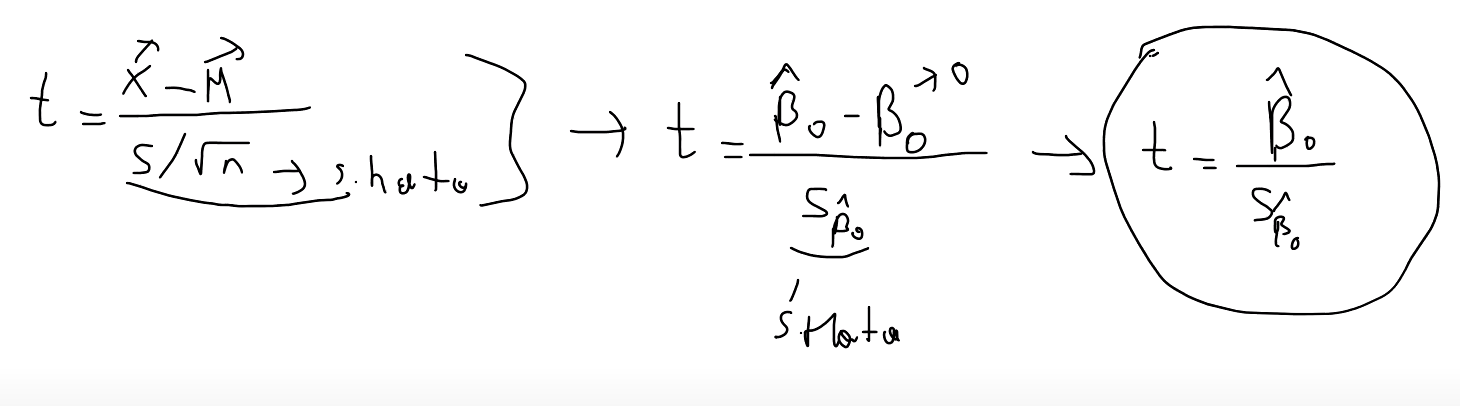 t = (X⃗ − M⃗) / (S/√n) → s.hata } → t = (β̂₀ − β₀ → 0) / S_β̂₀ → t = β̂₀ / S_β̂₀
s.Hata